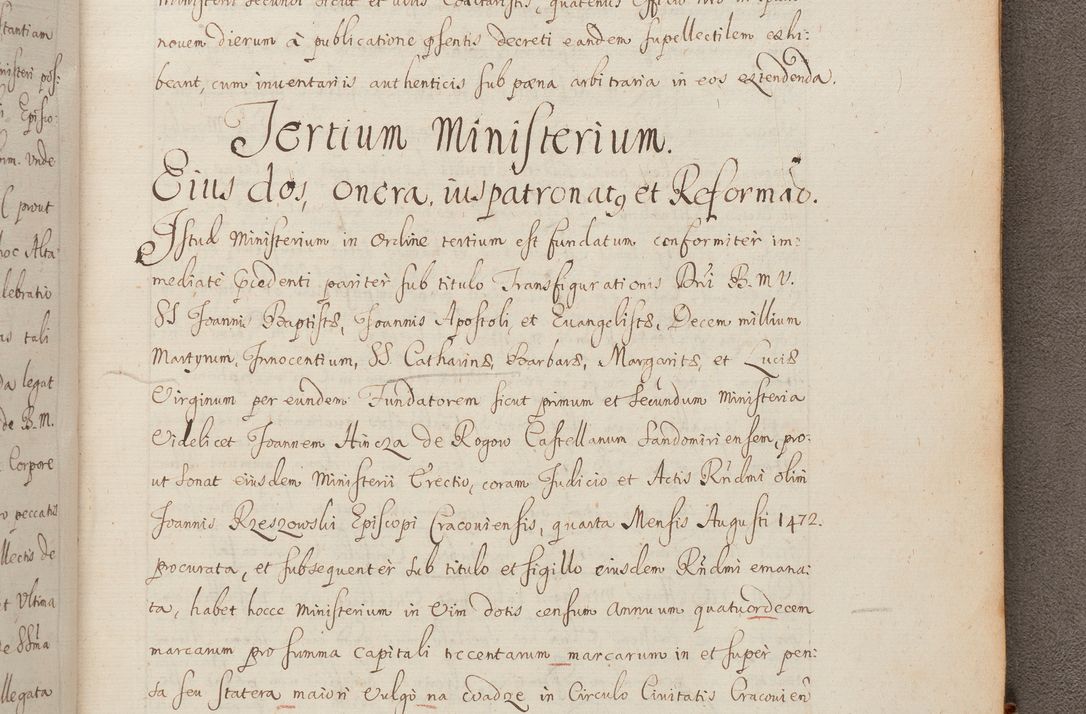 ministerii secundi sicut et
novem dierum à publicatione psentis decreti eandem supellectilem exhi:
beant, cum inventariis authenticis sub pæna arbitraria in eos extendenda.
Tertium Ministerium.
Eius dos, onera, iuspatronatq et Reformão.
Istud Ministerium in Ordine tertium est fundatum conformiter im:
mediatè pcedenti pariter sub titulo Transfigurationis Dni B. M. V.
SS Joannis Baptistæ, Joannis Apostoli, et Euangelistæ, Decem millium
Martyrum, Innocentium, SS. Catharinæ, Barbaræ, Margaritæ, et Luciæ
Virginum per eundem Fundatorem sicut primum et secundum Ministeria
Videlicet Joannem Hincza de Rogow Castellanum Sandomiriensem, pro:
ut sonat eiusdem Ministerii Erectio, coram Judicio et Actis Rndmi olim
Joannis Rzeszowski Episcopi Cracoviensis, quarta Mensis Augusti 1472.
procurata, et subsequenter sub titulo et sigillo eiusdem Rndmi emana:
ta, habet hocce Ministerium in Vim dotis censum annuum quatuordecem
marcarum pro summa capitali trecentarum marcarum in et super pen:
sa seu statera maiori Vulgò na wadze in Circulo Civitatis Cracovien
stantiam
nisteri pos:
Episco:
nm. Unde
prout
hoc Alta
lebratio
as tali
da legat
de B. M.
Corpore
o peccatis
llectis de
et Ultima
e SSma
llegata